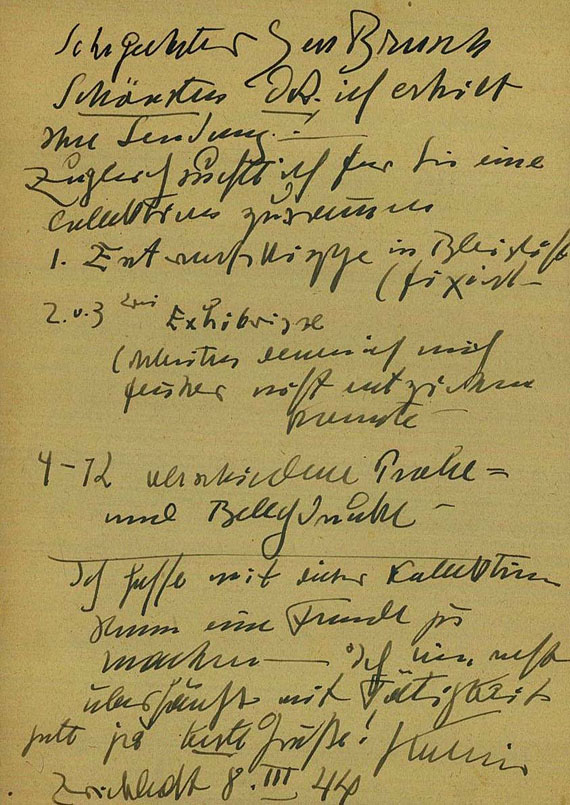 Sehr geehrter Herr
Schönsten Dank. ich erhielt
Ihre Sendung.!
Zugleich suchte ich für Sie eine
Collektion zusammen
1. Entwurfskizze in Bleistift
(fixiert –
2. u. 3 zwei Exlibrisse
ich mich
früher nicht entziehen
konnte –
4–12 verschiedene Probe=
und Belegdrucke –
Ich hoffe mit dieser Kollektion
Ihnen eine Freude zu
machen — Ich bin recht
überhäuft mit Tätigkeit
beste Grüße! Kubin
Zwickledt 8. III 44